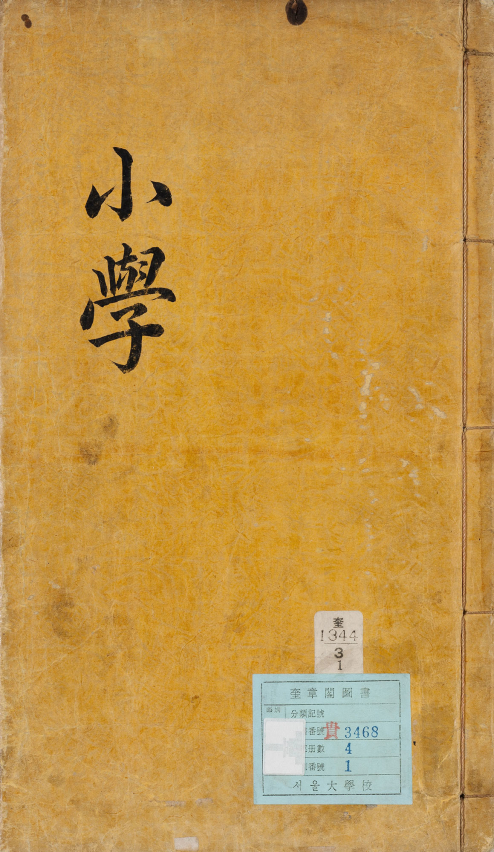 小學
奎
1344
3
1
奎章閣圖書
分類記號
番號 貴 3468
冊數 4
番號 1
서울大學校